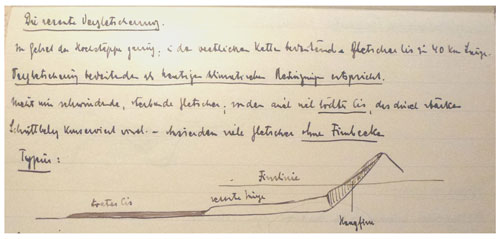 Die rezente Vergletscherung.
Im Gebiet der Hochsteppe gering; in den westlichen Ketten bedeutende Gletscher bis zu 40 Km Länge.
Vergletscherung bedeutender als heutigen klimatischen Bedingungen entspricht.
Meist nur schwindende, sterbende Gletscher; sondern auch viel todtes Eis, das durch starke
Schuttbedeckung Konserviert wird. – Ausserdem viele Gletscher ohne Firnbecken
Typus:
Firnlinie
totes Eis
rezente Zunge
Hangfirn